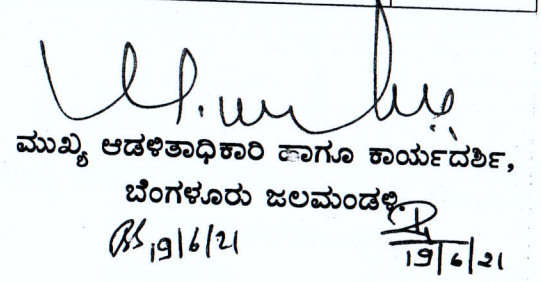 ಮುಖ್ಯ ಆಡಳಿತಾಧಿಕಾರಿ ಹಾಗೂ ಕಾರ್ಯದರ್ಶಿ,
ಬೆಂಗಳೂರು ಜಲಮಂಡಳಿ
19/6/21
19/6/21